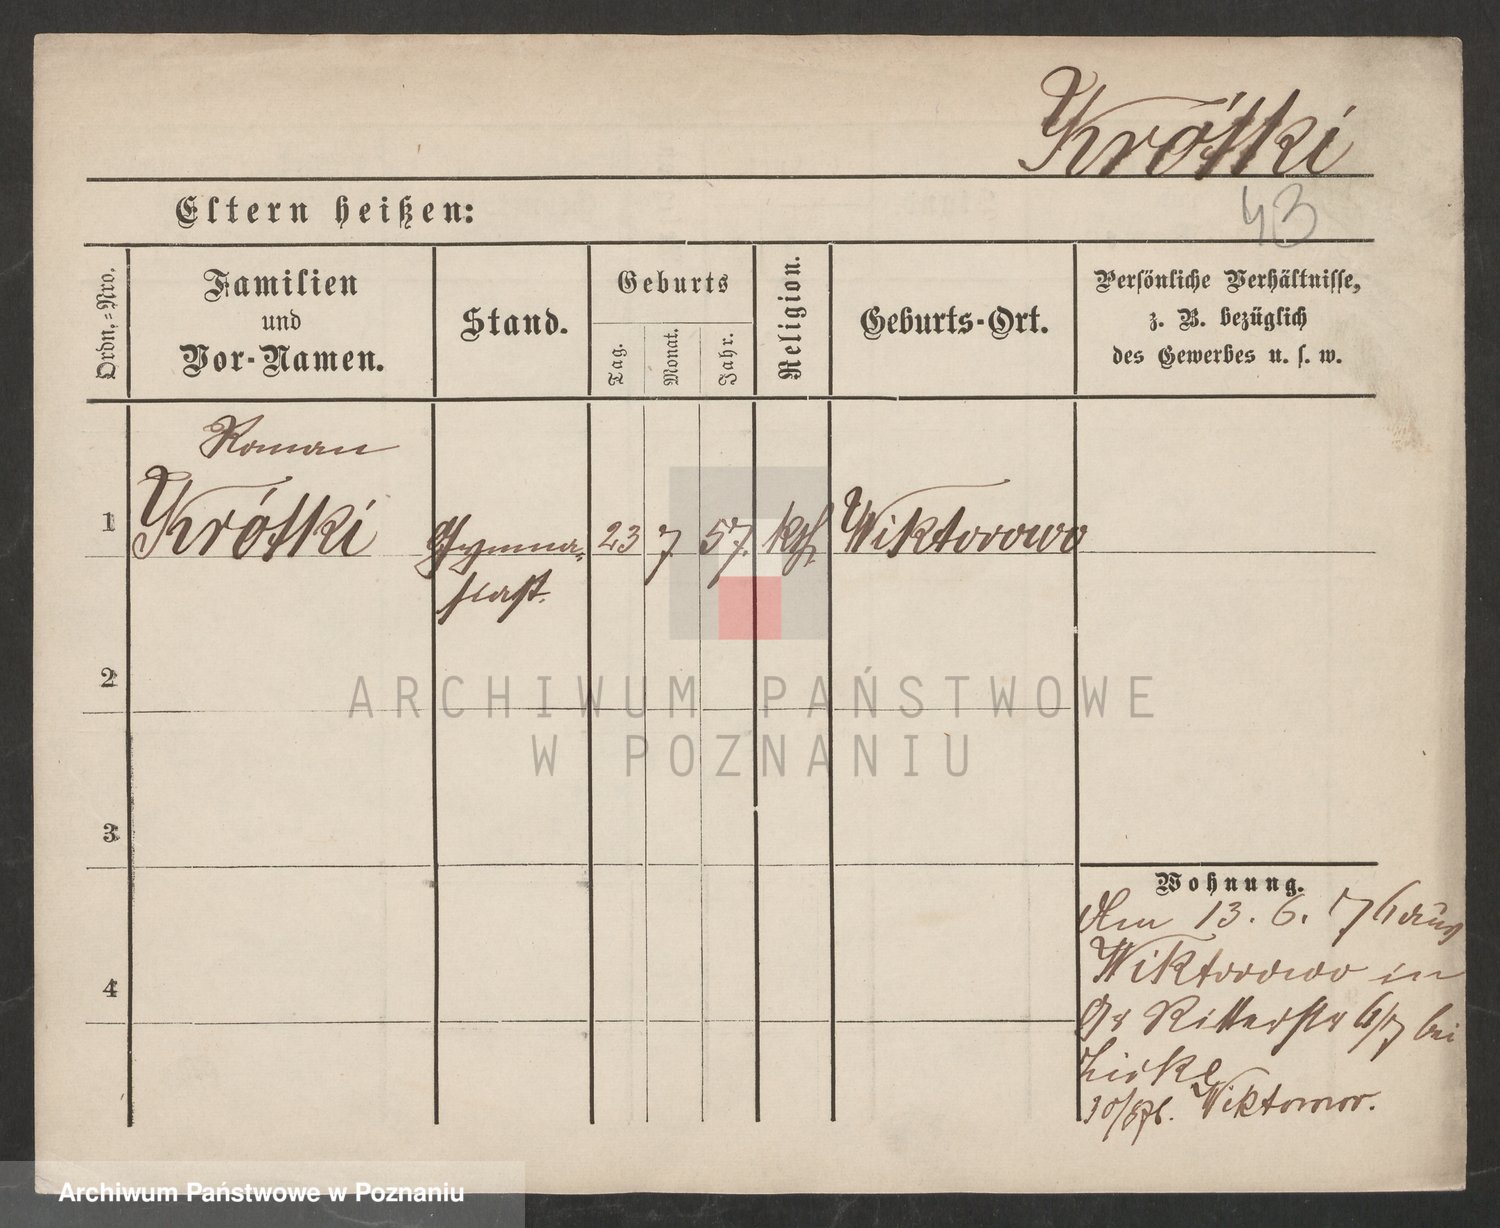 Krótki
43
Eltern heißen:
Ordn.-Nro.
Familien
und
Vor-Namen.
Stand.
Geburts
Tag.
Monat.
Jahr.
Religion.
Geburts-Ort.
Persönliche Verhältnisse,
z. B. bezüglich
des Gewerbes u. s. w.
Roman
1 Krótki Gymna- 23 7. 57. kth Wiktorowo
siast.
2
3
4
Wohnung.
Am 13. 6. 76 aus
Wiktorowo in
Gr Ritterstr 6/7 bei
Wiktorow.
ARCHIWUM PAŃSTWOWE
W POZNANIU
Archiwum Państwowe w Poznaniu